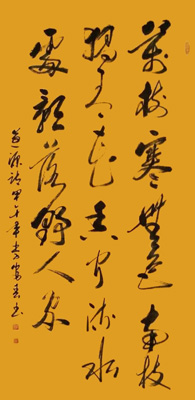 萬樹寒無色南枝
獨有花香聞流水
處影落野人家
道源詩甲午年